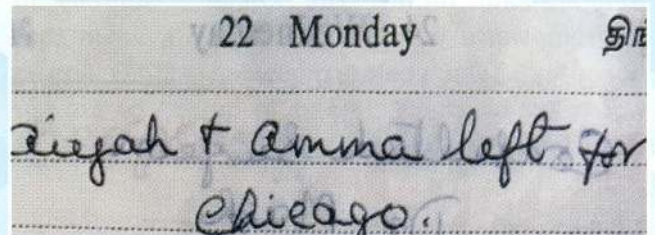 22 Monday திங்
aiyah + amma left for
Chicago.